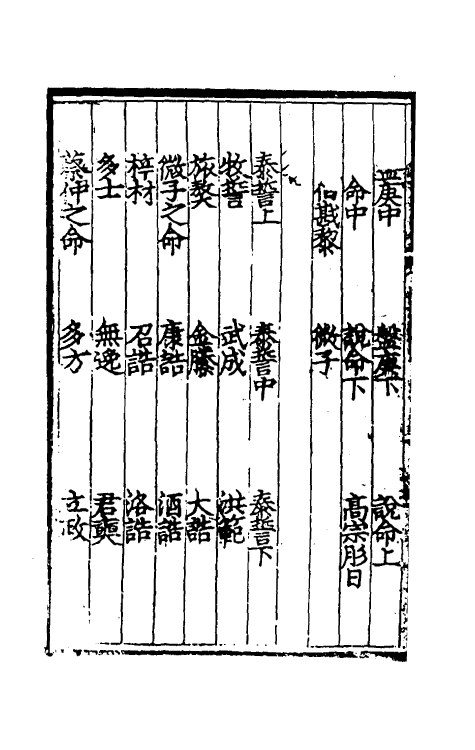 庚中　盤庚下　說命上
命中　說命下　高宗肜日
伯戡黎　微子
泰誓上　泰誓中　泰誓下
牧誓　武成　洪範
旅獒　金縢　大誥
微子之命　康誥　酒誥
梓材　召誥　洛誥
多士　無逸　君奭
蔡仲之命　多方　立政